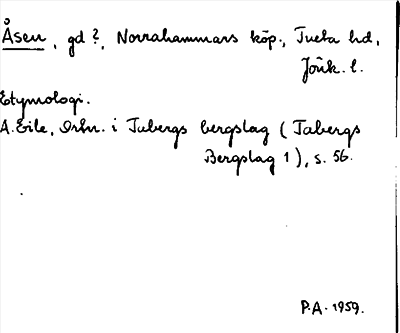 Åsen, gd?, Norrahammars köp., Tveta hd,
Jönk. l.
Etymologi.
A. Eile, Ortn. i Tabergs bergslag (Tabergs
Bergslag 1), s. 56.
P.A. 1959.